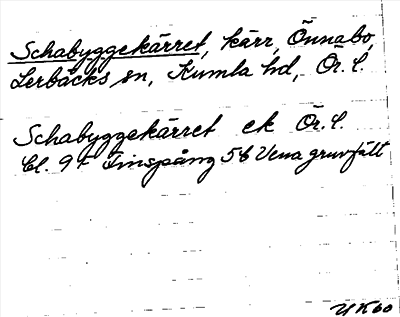 Schabyggekärret, kärr, Önnabo,
Lerbäcks sn, Kumla hd, Ör. l.
Schabyggekärret ek Ör. l.
Bl. 9f Finspång 5b Vena gruvfält
YK60